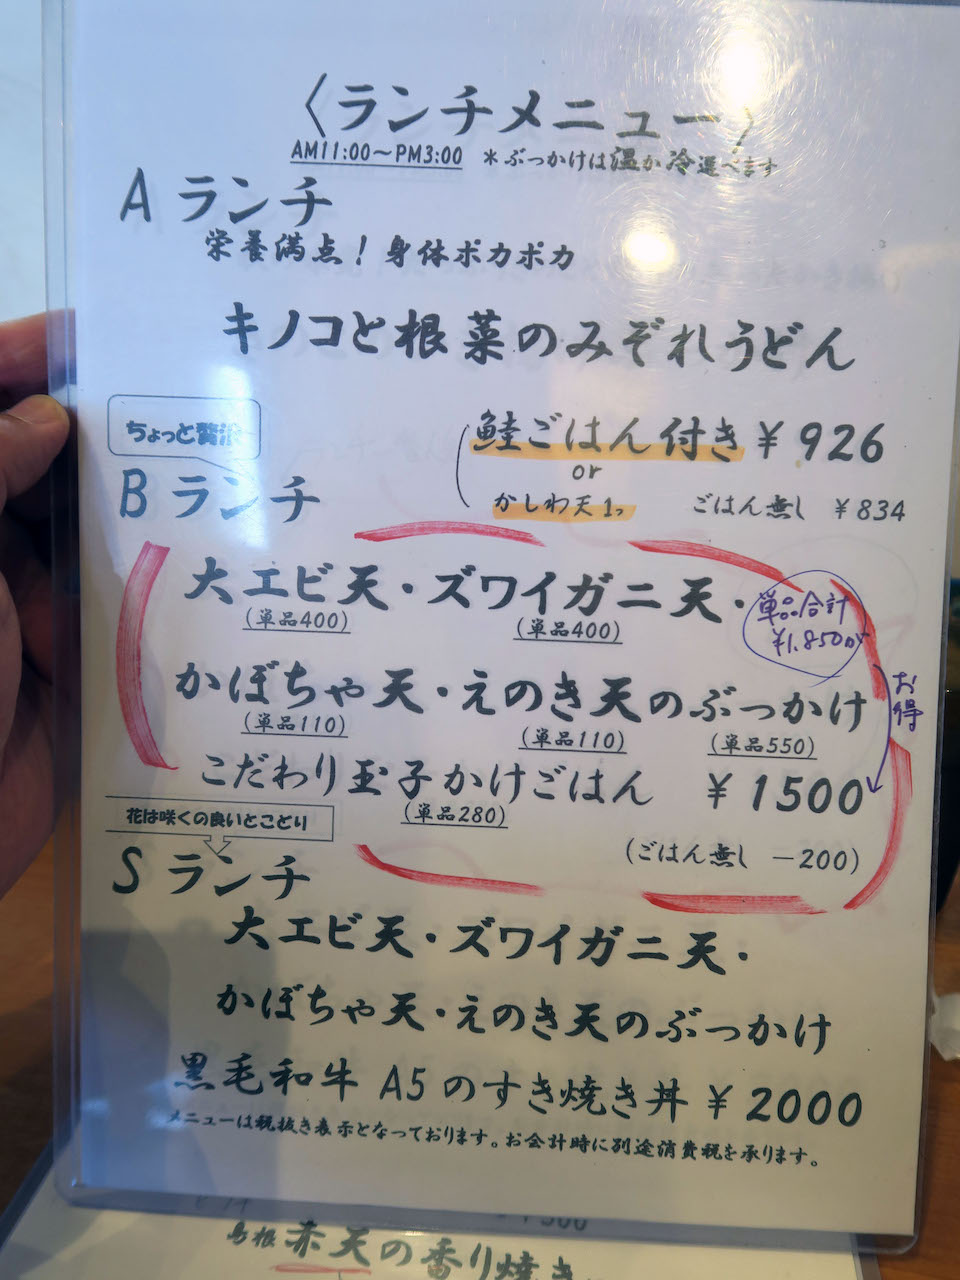 〈ランチメニュー〉
AM11:00～PM3:00 ＊ぶっかけは温か冷選べます
A ランチ
栄養満点！身体ポカポカ
キノコと根菜のみぞれうどん
ちょっと贅沢
鮭ごはん付き ¥926
or
かしわ天1つ ごはん無し ¥834
B ランチ
大エビ天・ズワイガニ天・
(単品400) (単品400)
単品合計
¥1,850が
お得
かぼちゃ天・えのき天のぶっかけ
(単品110) (単品110) (単品550)
こだわり玉子かけごはん ¥1500
(単品280)
(ごはん無し －200)
花は咲くの良いとことり
S ランチ
大エビ天・ズワイガニ天・
かぼちゃ天・えのき天のぶっかけ
黒毛和牛 A5のすき焼き丼 ¥2000
メニューは税抜き表示となっております。お会計時に別途消費税を承ります。
島根 赤天の香り焼き